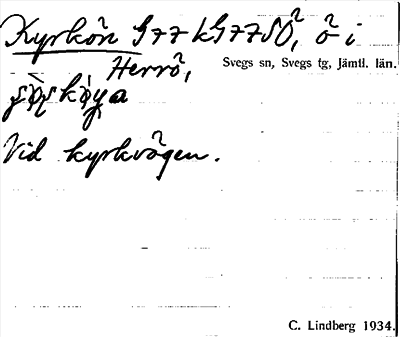 Kyrkön, ö i
Herrö,
Svegs sn, Svegs tg, Jämtl. län.
Vid kyrkvägen.
C. Lindberg 1934.